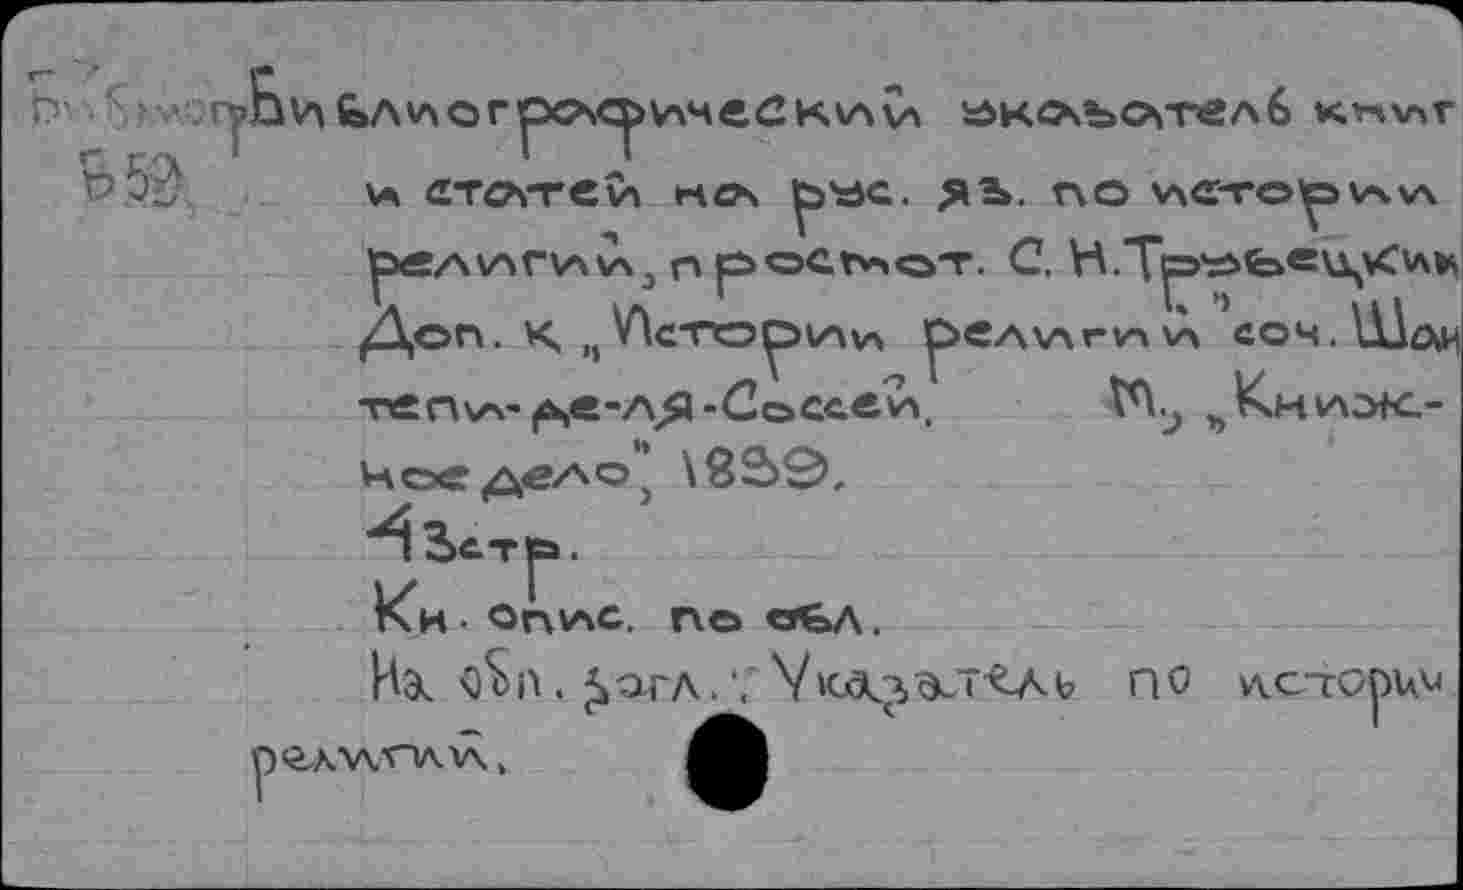 Библиографический указатель книг
Б59
и статей на рус. яз. по истории
религий, просмот. С. Н. Трубецким
Доп. к „Истории религии" соч. Шан
тепи-де-ля-Соссей. М., „Книж-
ное дело", 1899.
43 стр.
Кн. опис. по обл.
На обл. загл.: Указатель по истории
религий.